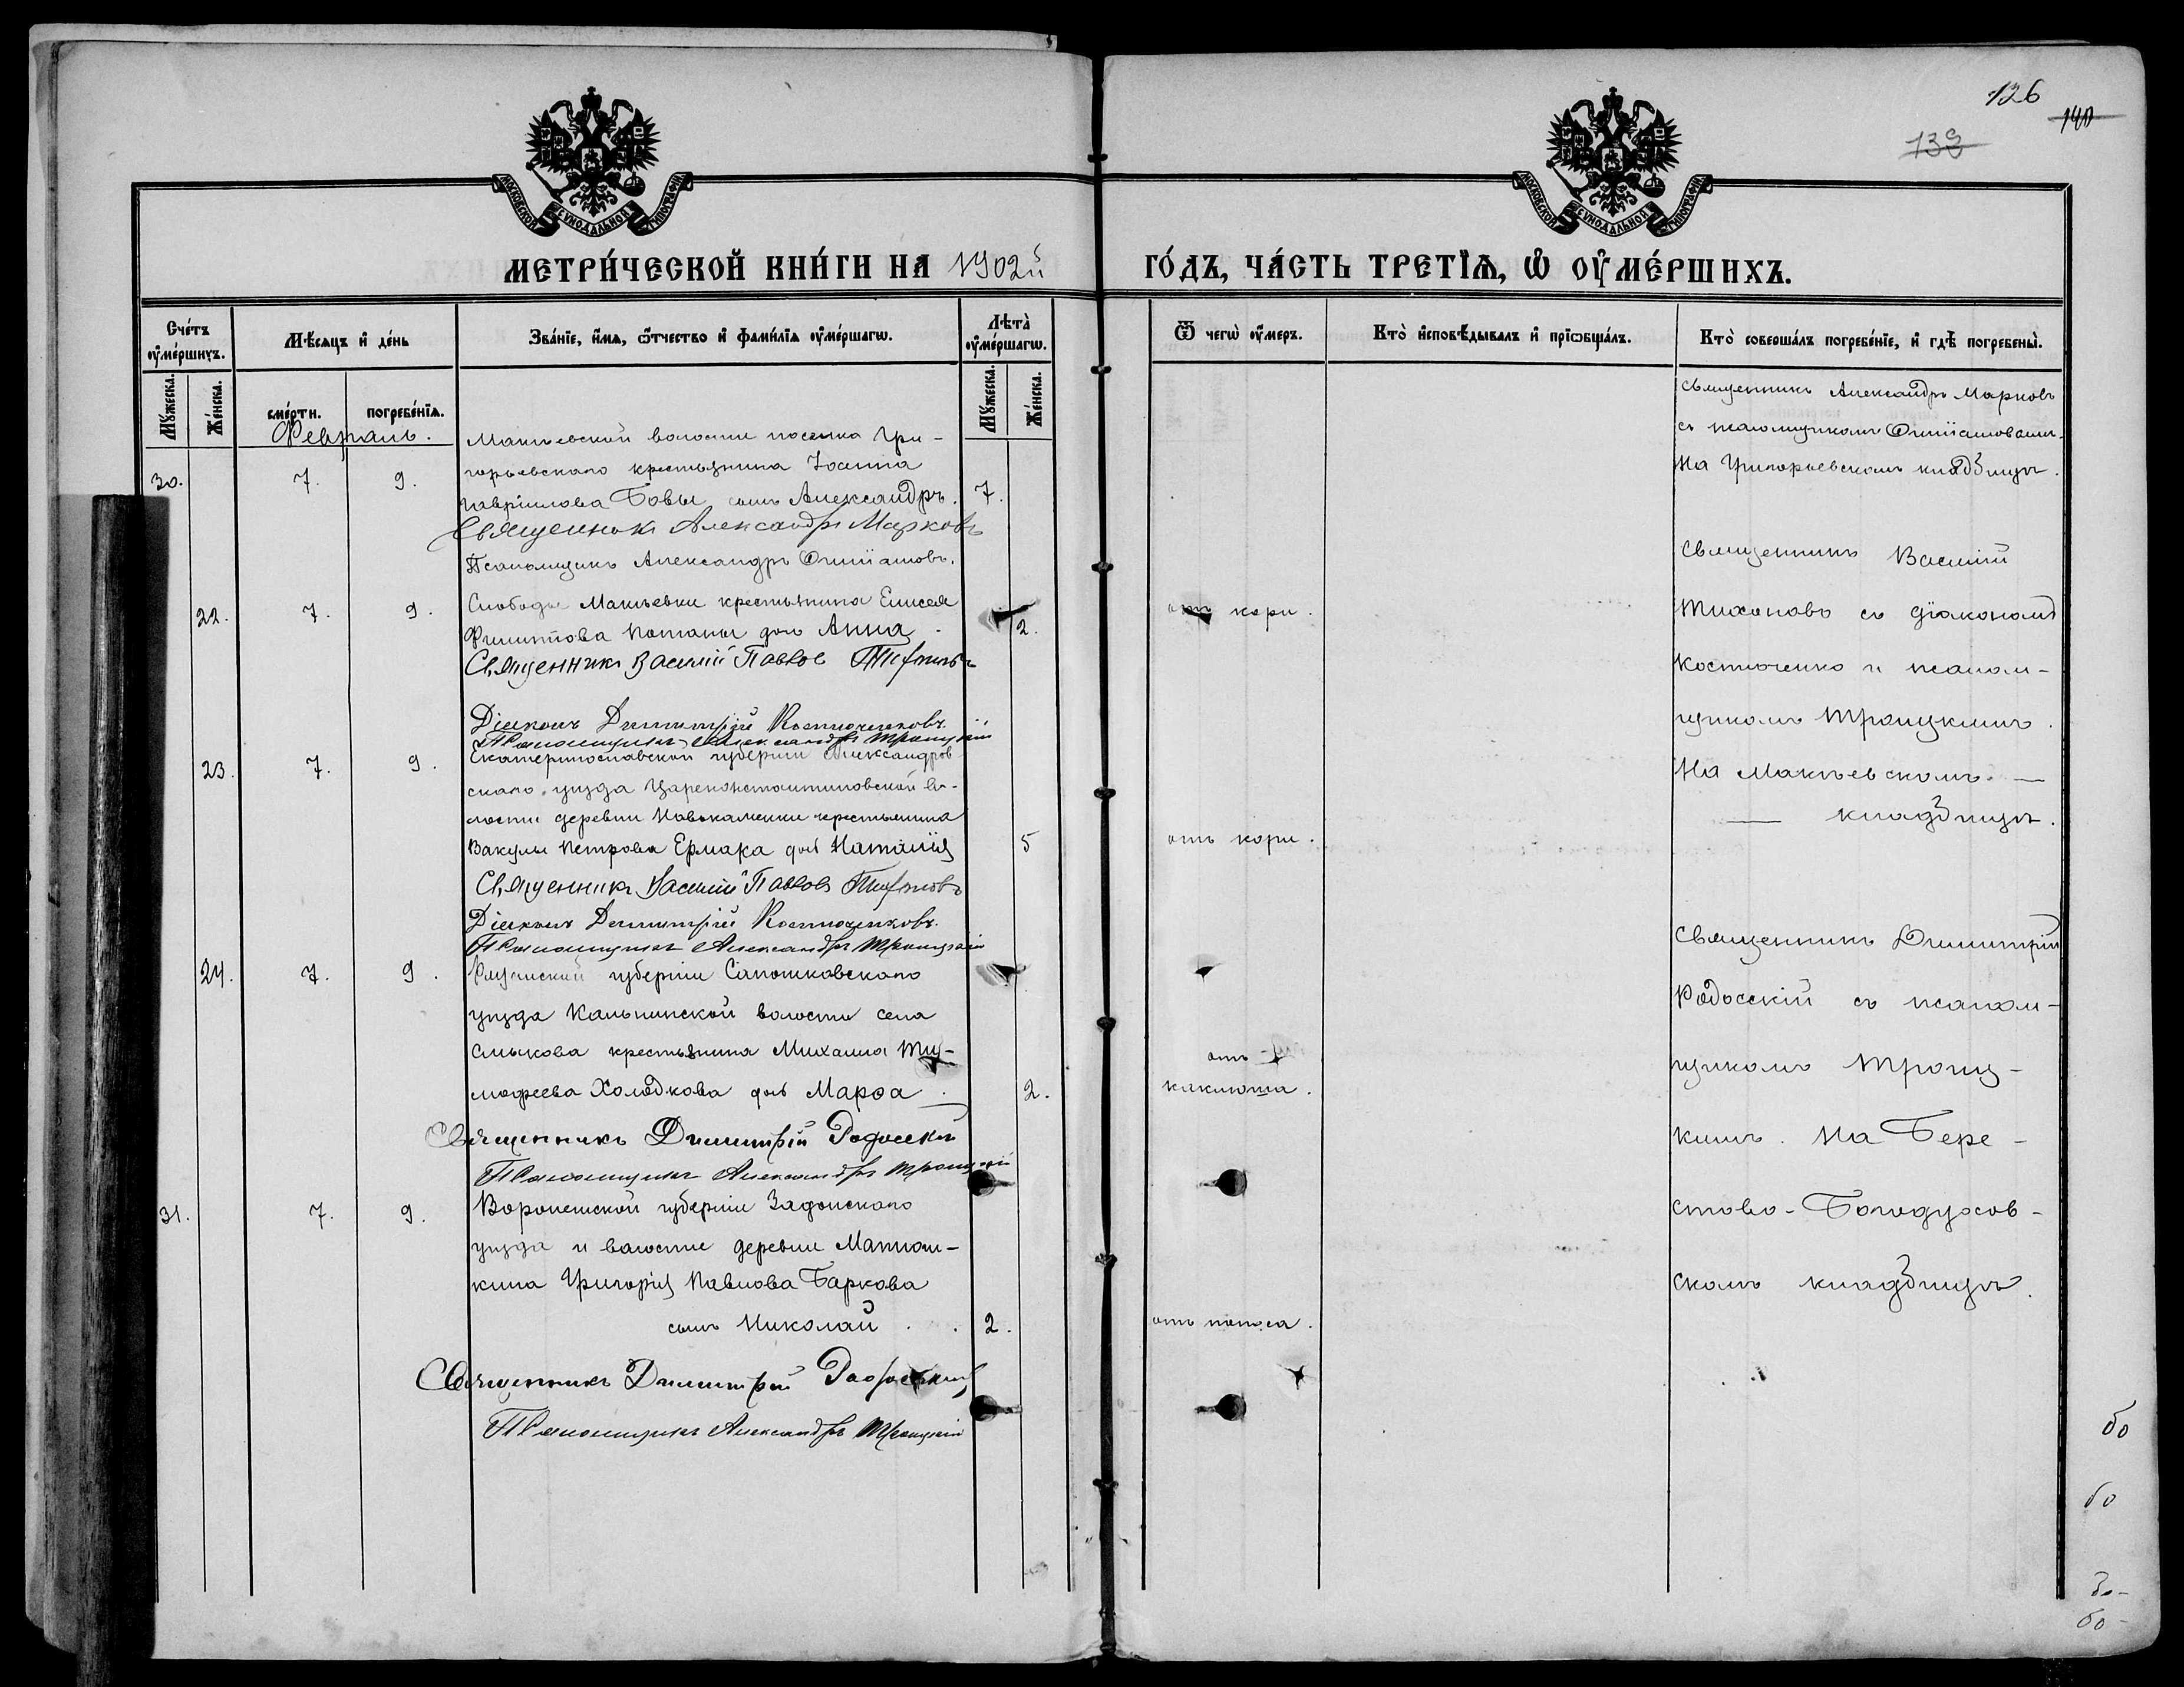 126
140
139
МОСКОВСКОЙ СѴНОДАЛЬНОЙ ТИПОГРАФІИ
МОСКОВСКОЙ СѴНОДАЛЬНОЙ ТИПОГРАФІИ
МЕТРИ́ЧЕСКОЙ КНИ́ГИ НА 1902й
ГО́ДЪ, ЧА́СТЬ ТРЕТІѦ, Ѽ ОУМЕ́РШИХЪ.
Сче́тъ оумершихъ.
Мѣ́сяцъ и҆ де́нь
Зва́нїе, и҆́мя, ѻ҆́тчество и҆ фами́лїя оумершагѡ.
Лѣта̀ оумершагѡ.
Ѿ чегѡ̀ оумеръ.
Кто̀ и҆сповѣ́дывалъ и҆ прїѡбща́лъ.
Кто̀ соверша́лъ погребе́нїе, и҆ гдѣ̀ погребены̀.
Мꙋ́жеска.
Же́нска.
сме́рти.
погребе́нїя.
Мꙋ́жеска.
Же́нска.
Февраль.
30.
7.
9.
Макѣевской волости поселка Гри-
горьевскаго крестьянина Іоанна
Гаврiилова Бовы сынъ Александръ. 7.
Священникъ Александръ Марковъ
Псаломщикъ Александръ
Священникъ Александръ Марковъ
съ псаломщикомъ
На Григорьевскомъ кладбищѣ.
22.
7.
9.
Слободы Макѣевки крестьянина Елисея
Филиппова Потапы дочь Анна. 2.
Священникъ Василій Павловъ Тихоновъ
Діаконъ Димитрій Костюченковъ.
Псаломщикъ Александръ Троицкій
отъ кори.
Священникъ Василій
Тихоновъ съ діакономъ
Костюченко и псалом-
щикомъ Троицкимъ.
На Макѣевскомъ —
— кладбищѣ.
23.
7.
9.
Екатеринославской губерніи Александров-
скаго уѣзда Цареконстантиновской во-
лости деревни Новокаменки крестьянина
Вакулы Петрова Ермака дочь Наталія 5
Священникъ Василій Павловъ Тихоновъ
Діаконъ Димитрій Костюченковъ.
Псаломщикъ Александръ Троицкій
отъ кори.
24.
7.
9.
губерніи Сапожковскаго
уѣзда Канинской волости села
Смыкова крестьянина Михаила Ти-
мофеева Холодкова дочь Марѳа. 2.
Священникъ Димитрій Родосскій
Псаломщикъ Александръ Троицкій
отъ
каклюша.
Священникъ Димитрій
Родосскій съ псалом-
щикомъ Троиц-
кимъ. На Бере-
стово-Богодухов-
скомъ кладбищѣ.
31.
7.
9.
Воронежской губерніи Задонскаго
уѣзда и волости деревни Матюш-
кина Григорія Павлова Баркова
сынъ Николай . . 2.
Священникъ Димитрій Родосскій
Псаломщикъ Александръ Троицкій
отъ поноса.
бо
бо
бо-
бо-